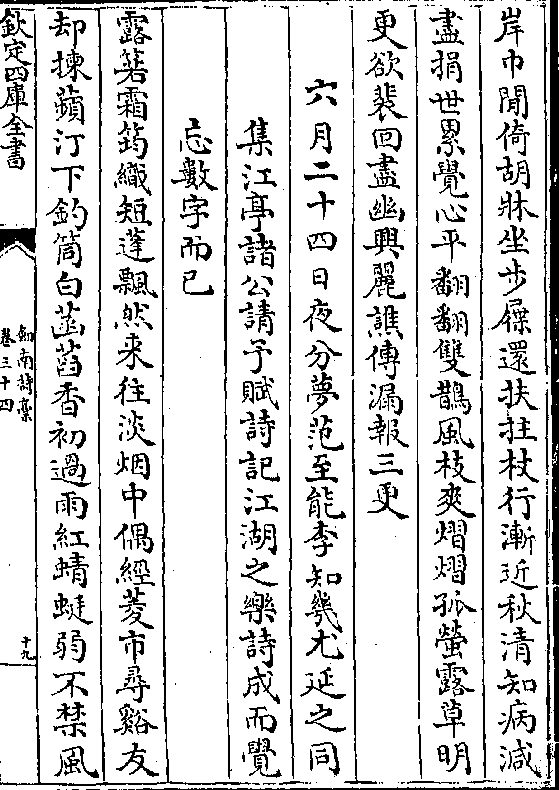 岸巾閒倚胡牀坐步屧還扶拄杖行漸近秋清知病減
盡捐世累覺心平翻翻雙鵲風枝爽熠熠孤螢露草明
更欲裴回盡幽興麗譙傳漏報三更
六月二十四日夜分夢范至能李知幾尤延之同
集江亭諸公請予賦詩記江湖之樂詩成而覺
忘數字而已
露箬霜筠織短蓬飄然来往淡烟中偶經菱市尋谿友
却揀蘋汀下釣筒白菡萏香初過雨紅蜻蜓弱不禁風
欽定四庫全書
劒南詩藁
卷三十四
十九